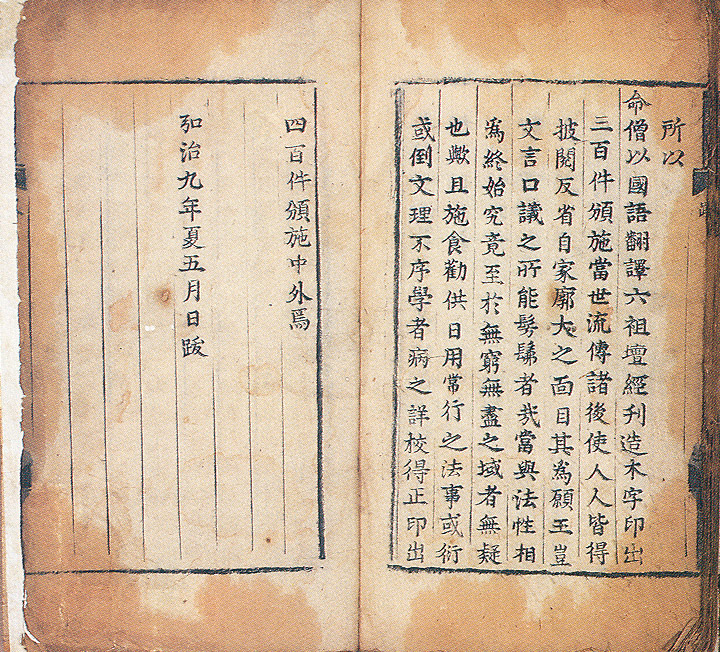 所以
命僧以國語翻譯六祖壇經刊造木字印出
三百件頒施當世流傳諸後使人人皆得
披閱反省自家廓大之面目其為願王豈
文言口議之所能髣髴者㢤當與法性相
為終始究竟至於無窮無盡之域者無疑
也歟且施食勸供日用常行之法事或衍
或倒文理不序學者病之詳校得正印出
四百件頒施中外焉
弘治九年夏五月日跋